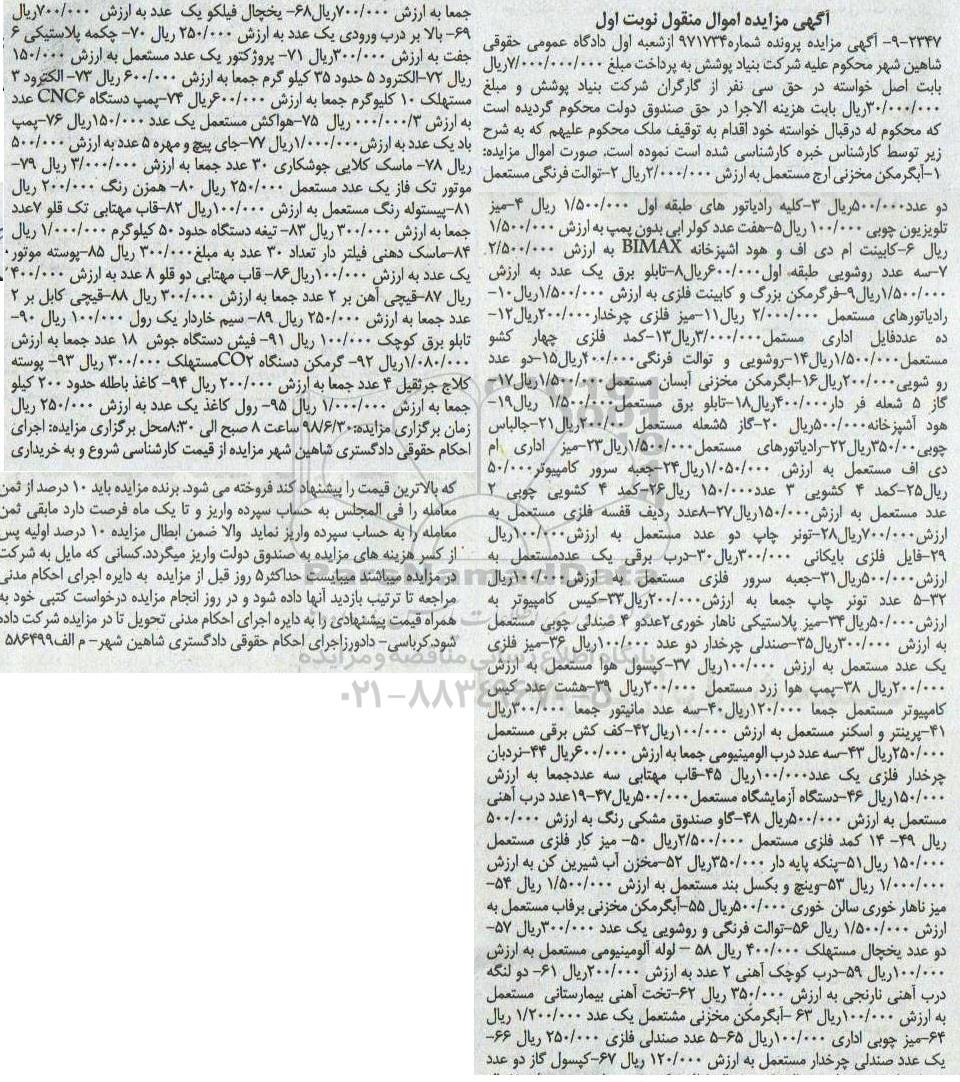 آگهی مزایده اموال منقول نوبت اول
۹-۲۳۴۷- آگهی مزایده پرونده شماره۹۷۱۷۳۴ ازشعبه اول دادگاه عمومی حقوقی
شاهین شهر محکوم علیه شرکت بنیاد پوشش به پرداخت مبلغ ۷/۰۰۰/۰۰۰/۰۰۰ریال
بابت اصل خواسته در حق سی نفر از کارگران شرکت بنیاد پوشش و مبلغ
۳۰/۰۰۰/۰۰۰ریال بابت هزینه الاجرا در حق صندوق دولت محکوم گردیده است
که محکوم له درقبال خواسته خود اقدام به توقیف ملک محکوم علیهم که به شرح
زیر توسط کارشناس خبره کارشناسی شده است نموده است. صورت اموال مزایده:
۱-آبگرمکن مخزنی ارج مستعمل به ارزش ۲/۰۰۰/۰۰۰ریال ۲-توالت فرنگی مستعمل
دو عدد۵۰۰/۰۰۰ریال ۳-کلیه رادیاتور های طبقه اول ۱/۵۰۰/۰۰۰ ریال ۴-میز
تلویزیون چوبی ۱۰۰/۰۰۰ ریال۵-هفت عدد کولر ابی بدون پمپ به ارزش ۱/۵۰۰/۰۰۰
ریال ۶-کابینت ام دی اف و هود اشپزخانه BIMAX به ارزش ۲/۵۰۰/۰۰۰
۷-سه عدد روشویی طبقه اول۶۰۰/۰۰۰ریال۸-تابلو برق یک عدد به ارزش
۱/۵۰۰/۰۰۰ریال۹-فرگرمکن بزرگ و کابینت فلزی به ارزش ۱/۵۰۰/۰۰۰ریال۱۰-
رادیاتورهای مستعمل ۲/۰۰۰/۰۰۰ ریال۱۱-میز فلزی چرخدار۲۰۰/۰۰۰ریال۱۲-
ده عددفایل اداری مستمل۳/۰۰۰/۰۰۰ریال۱۳-کمد فلزی چهار کشو
مستعمل۱/۵۰۰/۰۰۰ریال۱۴-روشویی و توالت فرنگی۴۰۰/۰۰۰ریال۱۵-دو عدد
رو شویی۲۰۰/۰۰۰ریال۱۶-ابگرمکن مخزنی آبسان مستعمل۱/۵۰۰/۰۰۰ریال۱۷-
گاز ۵ شعله فر دار۴۰۰/۰۰۰ریال۱۸-تابلو برق مستعمل۱/۵۰۰/۰۰۰ ریال۱۹-
هود آشپزخانه۵۰۰/۰۰۰ریال ۲۰-گاز ۵شعله مستعمل ۲۰۰/۰۰۰ریال۲۱-جالباس
چوبی۳۵۰/۰۰۰ریال۲۲-رادیاتورهای مستعمل۱/۵۰۰/۰۰۰ریال۲۳-میز اداری ام
دی اف مستعمل به ارزش ۱/۰۵۰/۰۰۰ریال۲۴-جعبه سرور کامپیوتر۵۰/۰۰۰
ریال۲۵-کمد ۴ کشویی ۳ عدد۱۵۰/۰۰۰ ریال۲۶-کمد ۴ کشویی چوبی ۲
عدد مستعمل به ارزش۱۵۰/۰۰۰ریال۲۷-۸عدد ردیف قفسه فلزی مستعمل به
ارزش۷۰۰/۰۰۰ریال۲۸-تونر چاپ دو عدد مستعمل به ارزش۱۰۰/۰۰۰ریال
۲۹-فایل فلزی بایگانی ۳۰۰/۰۰۰ریال۳۰-درب برقی یک عددمستعمل به
ارزش۵۰۰/۰۰۰ریال۳۱-جعبه سرور فلزی مستعمل به ارزش۱۰۰/۰۰۰ریال
۳۲-۵ عدد تونر چاپ جمعا به ارزش۲۰۰/۰۰۰ریال۳۳-کیس کامپیوتر به
ارزش۵۰/۰۰۰ریال۳۴-میز پلاستیکی ناهار خوری۲عددو ۴ صندلی چوبی مستعمل
به ارزش ۳۰۰/۰۰۰ریال۳۵-صندلی چرخدار دو عدد ۱۰۰/۰۰۰ریال ۳۶-میز فلزی
یک عدد مستعمل به ارزش ۱۰۰/۰۰۰ریال ۳۷-کپسول هوا مستعمل به ارزش
۲۰۰/۰۰۰ریال ۳۸-پمپ هوا زرد مستعمل ۲۰۰/۰۰۰ریال ۳۹-هشت عدد کیس
کامپیوتر مستعمل جمعا ۱۲۰/۰۰۰ریال۴۰-سه عدد مانیتور جمعا ۳۰۰/۰۰۰ریال
۴۱-پرینتر و اسکنر مستعمل به ارزش ۱۰۰/۰۰۰ریال۴۲-کف کش برقی مستعمل
۲۵۰/۰۰۰ریال ۴۳-سه عدد درب الومینیومی جمعا به ارزش ۶۰۰/۰۰۰ریال ۴۴-نردبان
چرخدار فلزی یک عدد۱۰۰/۰۰۰ریال ۴۵-قاب مهتابی سه عددجمعا به ارزش
۱۵۰/۰۰۰ریال ۴۶-دستگاه آزمایشگاه مستعمل۵۰۰/۰۰۰ریال۴۷-۱۹عدد درب آهنی
مستعمل به ارزش ۵۰۰/۰۰۰ریال ۴۸-گاو صندوق مشکی رنگ به ارزش ۵۰۰/۰۰۰
ریال ۴۹- ۱۴ کمد فلزی مستعمل ۲/۵۰۰/۰۰۰ریال ۵۰- میز کار فلزی مستعمل
۱۵۰/۰۰۰ ریال۵۱-پنکه پایه دار ۳۵۰/۰۰۰ریال ۵۲-مخزن آب شیرین کن به ارزش
۱/۰۰۰/۰۰۰ ریال ۵۳-وینچ و بکسل بند مستعمل به ارزش ۱/۵۰۰/۰۰۰ ریال ۵۴-
میز ناهار خوری سالن خوری ۵۰۰/۰۰۰ریال ۵۵-آبگرمکن مخزنی برفاب مستعمل به
ارزش ۱/۵۰۰/۰۰۰ ریال ۵۶-توالت فرنگی و روشویی یک عدد ۳۰۰/۰۰۰ریال ۵۷-
دو عدد یخچال مستهلک ۴۰۰/۰۰۰ ریال ۵۸ - لوله آلومینیومی مستعمل به ارزش
۱۰۰/۰۰۰ریال ۵۹-درب کوچک آهنی ۲ عدد به ارزش ۲۰۰/۰۰۰ریال ۶۱- دو لنگه
درب آهنی نارنجی به ارزش ۳۵۰/۰۰۰ ریال ۶۲-تخت آهنی بیمارستانی مستعمل
به ارزش ۱۰۰/۰۰۰ریال ۶۳ -آبگرمکن مخزنی مشتعمل یک عدد ۱/۲۰۰/۰۰۰ ریال
۶۴-میز چوبی اداری ۱۰۰/۰۰۰ریال ۶۵-۵ عدد صندلی فلزی ۲۵۰/۰۰۰ ریال ۶۶-
یک عدد صندلی چرخدار مستعمل به ارزش ۱۲۰/۰۰۰ ریال ۶۷-کپسول گاز دو عدد
جمعا به ارزش ۷۰۰/۰۰۰ریال۶۸- یخچال فیلکو یک عدد به ارزش ۷۰۰/۰۰۰ریال
۶۹- بالا بر درب ورودی یک عدد به ارزش ۲۵۰/۰۰۰ ریال ۷۰- چکمه پلاستیکی ۶
جفت به ارزش ۳۰۰/۰۰۰ریال ۷۱- پروژکتور یک عدد مستعمل به ارزش ۱۵۰/۰۰۰
ریال ۷۲-الکترود ۵ حدود ۳۵ کیلو گرم جمعا به ارزش ۶۰۰/۰۰۰ ریال ۷۳-الکترود ۳
مستهلک ۱۰ کلیوگرم جمعا به ارزش ۶۰۰/۰۰۰ریال ۷۴-پمپ دستگاه CNC۶ عدد
به ارزش ۰۰۰/۰۰۰/۳ ریال ۷۵-هواکش مستعمل یک عدد ۱۵۰/۰۰۰ریال ۷۶-پمپ
باد یک عدد به ارزش۱/۰۰۰/۰۰۰ریال ۷۷-جای پیچ و مهره ۵ عدد به ارزش ۵۰۰/۰۰۰
ریال ۷۸- ماسک کلایی جوشکاری ۳۰ عدد جمعا به ارزش ۳/۰۰۰/۰۰۰ ریال ۷۹-
موتور تک فاز یک عدد مستعمل ۲۵۰/۰۰۰ ریال ۸۰- همزن رنگ ۲۰۰/۰۰۰ ریال
۸۱-پیستوله رنگ مستعمل به ارزش ۱۰۰/۰۰۰ریال ۸۲-قاب مهتابی تک قلو ۷عدد
جمعا به ارزش ۳۰۰/۰۰۰ ریال ۸۳- تیغه دستگاه حدود ۵۰ کیلوگرم ۱/۰۰۰/۰۰۰ ریال
۸۴-ماسک دهنی فیلتر دار تعداد ۳۰ عدد به مبلغ۳۰۰/۰۰۰ ریال ۸۵-پوسته موتور
یک عدد به ارزش ۱۰۰/۰۰۰ریال۸۶- قاب مهتابی دو قلو ۸ عدد به ارزش ۴۰۰/۰۰۰
ریال ۸۷-قیچی آهن بر ۲ عدد جمعا به ارزش ۳۰۰/۰۰۰ ریال ۸۸-قیچی کابل بر ۲
عدد جمعا به ارزش ۲۵۰/۰۰۰ ریال ۸۹- سیم خاردار یک رول ۱۰۰/۰۰۰ ریال ۹۰-
تابلو برق کوچک ۱۰۰/۰۰۰ ریال ۹۱- فیش دستگاه جوش ۱۸ عدد جمعا به ارزش
۱/۰۸۰/۰۰۰ریال ۹۲- گرمکن دستگاه CO۲مستهلک ۳۰۰/۰۰۰ ریال ۹۳- پوسته
کلاج جرثقیل ۴ عدد جمعا به ارزش ۲۰۰/۰۰۰ ریال ۹۴- کاغذ باطله حدود ۲۰۰ کیلو
جمعا به ارزش ۱/۰۰۰/۰۰۰ ریال ۹۵- رول کاغذ یک عدد به ارزش ۲۵۰/۰۰۰ ریال
زمان برگزاری مزایده:۹۸/۶/۳۰ ساعت ۸ صبح الی ۸:۳۰محل برگزاری مزایده: اجرای
احکام حقوقی دادگستری شاهین شهر مزایده از قیمت کارشناسی شروع و به خریداری
که بالاترین قیمت را پیشنهاد کند فروخته می شود. برنده مزایده باید ۱۰ درصد از ثمن
معامله را فی المجلس به حساب سپرده واریز و تا یک ماه فرصت دارد مابقی ثمن
معامله را به حساب سپرده واریز نماید والا ضمن ابطال مزایده ۱۰ درصد اولیه پس
از کسر هزینه های مزایده به صندوق دولت واریز میگردد.کسانی که مایل به شرکت
در مزایده میباشند میبایست حداکثر۵ روز قبل از مزایده به دایره اجرای احکام مدنی
مراجعه تا ترتیب بازدید آنها داده شود و در روز انجام مزایده درخواست کتبی خود به
همراه قیمت پیشنهادی را به دایره اجرای احکام مدنی تحویل تا در مزایده شرکت داده
شود.کرباسی- دادورزاجرای احکام حقوقی دادگستری شاهین شهر- م الف۵۸۶۴۹۹
ParsNamadData
پایگاه اطلاع رسانی مناقصه و مزایده
۰۲۱-۸۸۳۴۹۶۷۰-۵